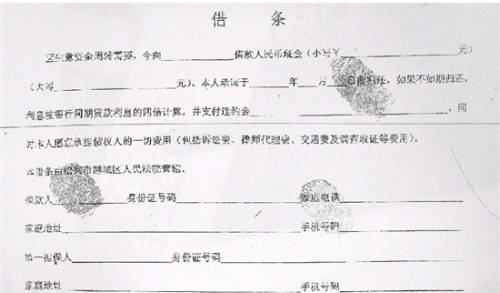 借 条
因生意资金周转需要，今向 借款人民币现金（小写￥ 元）
（大写 元），本人承诺于 年 月 日前归还，如果不如期归还，
利息按银行同期贷款利息的四倍计算，并支付违约金 ，同
时本人愿意承担债权人的一切费用（包括诉讼费、律师代理费、交通费及调查取证等费用）。
本借条由绍兴市越城区人民法院管辖。
借款人 身份证号码 家庭电话
家庭地址 手机号码
第一担保人 身份证号码
家庭地址 手机号码